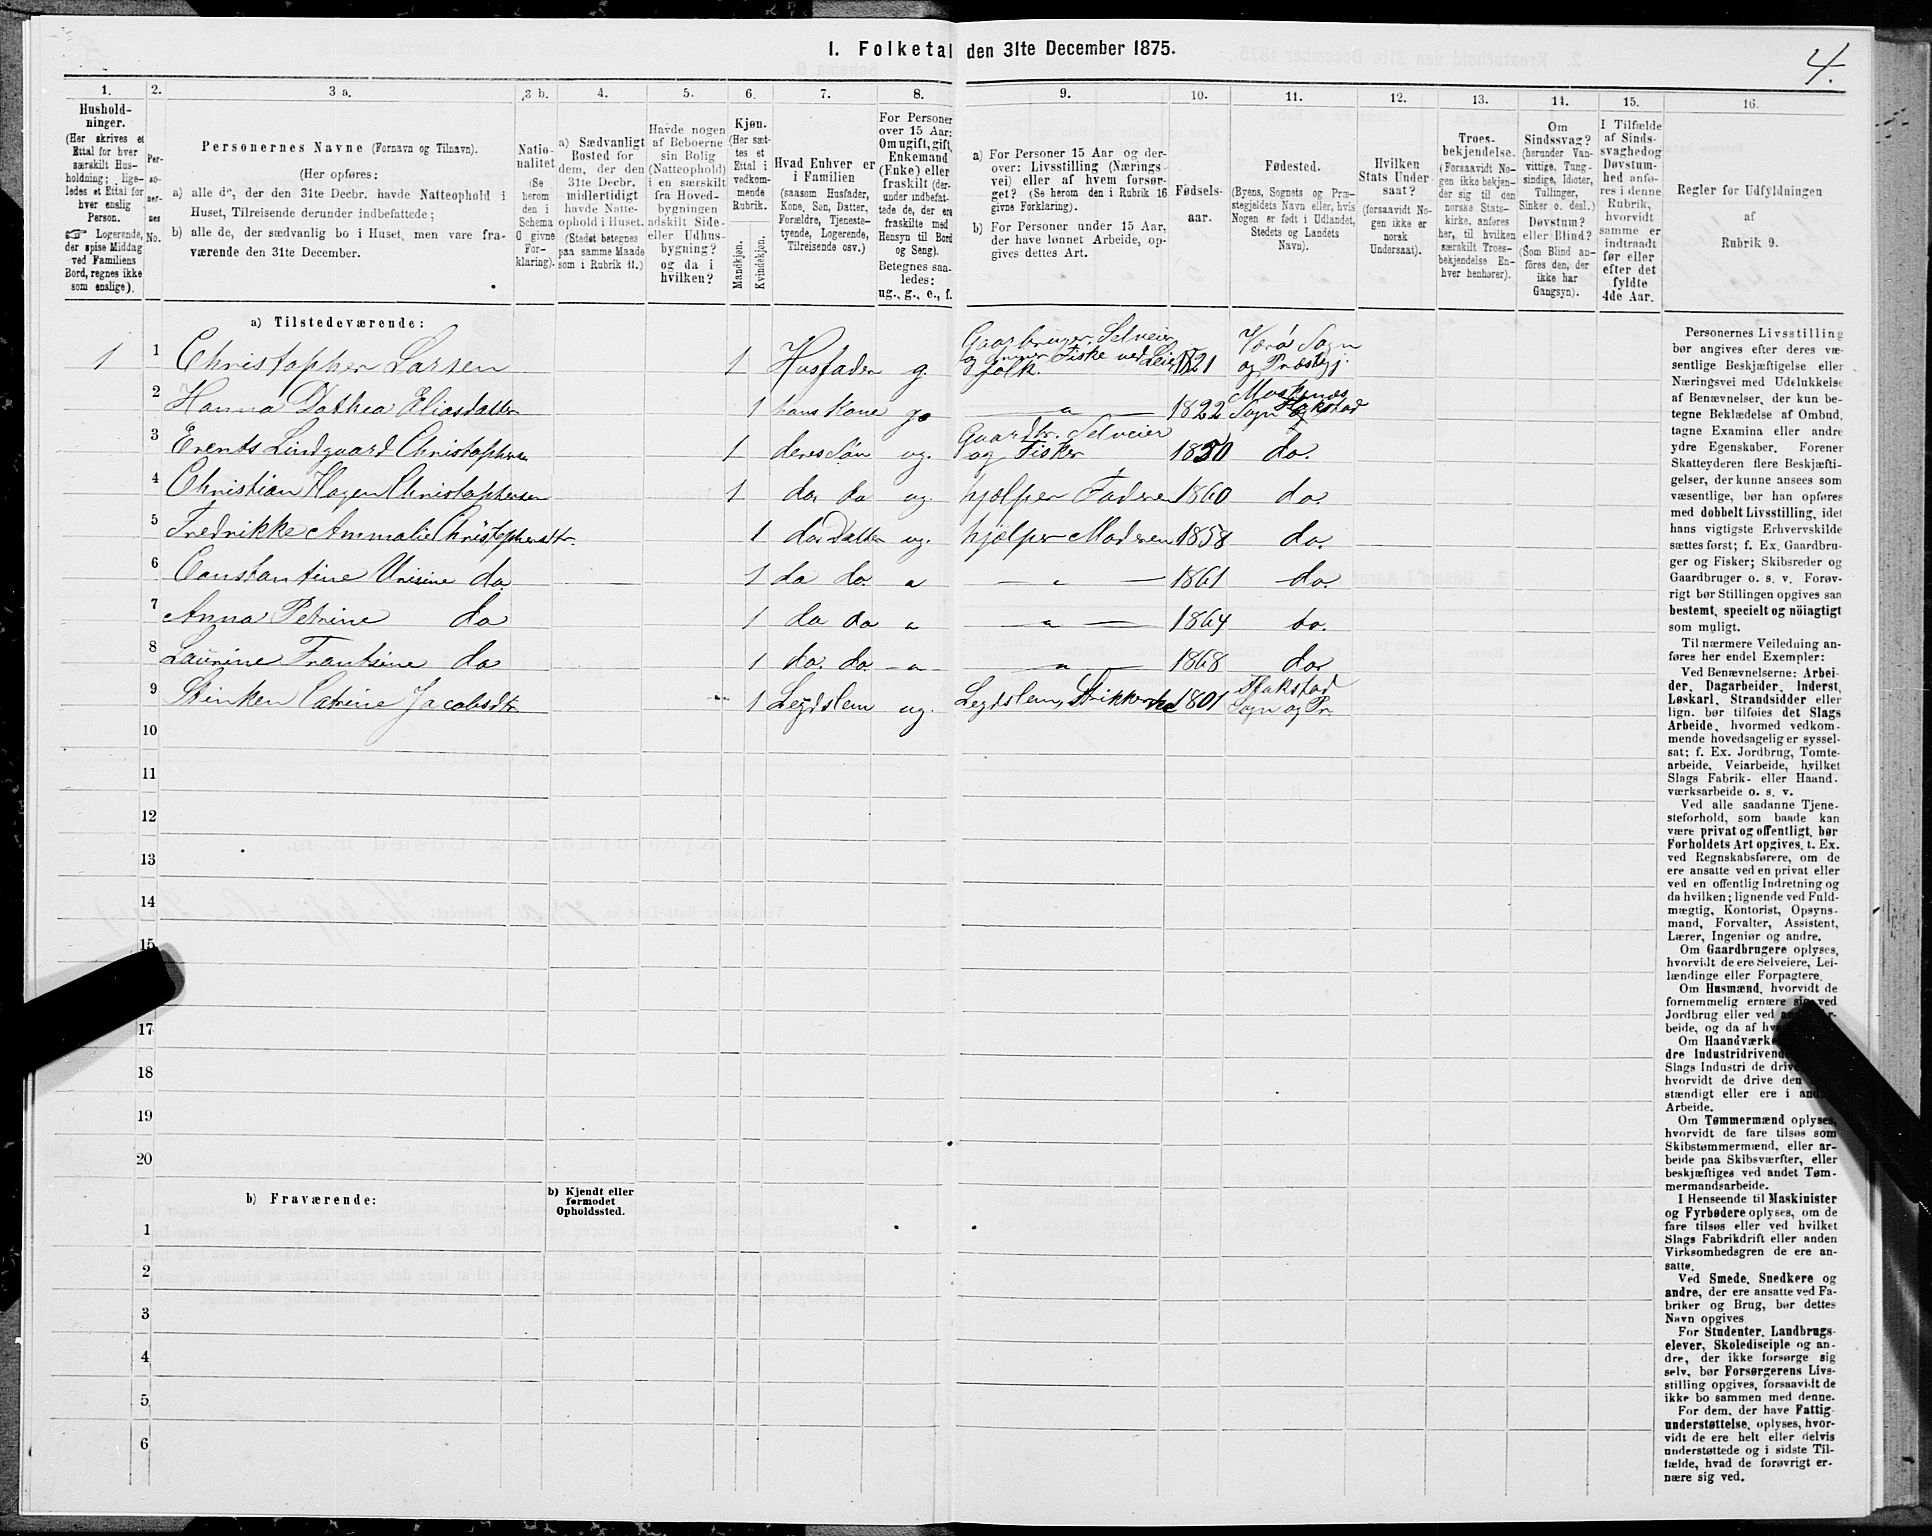 4.
I. Folketal den 31te December 1875.
1. 2. 3 a. 3 b. 4. 5. 6. 7. 8. 9. 10. 11. 12. 13. 14. 15. 16.
Hushold-
ninger.
(Her skrives et
Ettal for hver
særskilt Hus-
holdning; lige-
ledes et Ettal for
hver enslig
Person.
☞ Logerende,
der spise Middag
ved Familiens
Bord, regnes ikke
som enslige).
Per-
so-
ner-
nes
No.
Personernes Navne (Fornavn og Tilnavn).
(Her opføres:
a) alle de, der den 31te Decbr. havde Natteophold i
Huset, Tilreisende derunder indbefattede;
b) alle de, der sædvanlig bo i Huset, men vare fra-
værende den 31te December.
Natio-
nalitet
(Se
herom
den i
Schema
O givne
For-
klaring).
a) Sædvanligt
Bosted for
dem, der den
31te Decbr.
midlertidigt
havde Natte-
ophold i Huset.
(Stedet betegnes
paa samme Maade
som i Rubrik 11.)
Havde nogen
af Beboerne
sin Bolig
(Natteophold)
i en særskilt
fra Hoved-
bygningen
adskilt Side-
eller Udhus-
bygning?
og da i
hvilken?
Kjøn.
(Her sæt-
tes et
Ettal i
vedkom-
mende
Rubrik.
Mandkjøn.
Kvindekjøn.
Hvad Enhver er
i Familien
(saasom Husfader,
Kone, Søn, Datter,
Forældre, Tjeneste-
tyende, Logerende,
Tilreisende osv.)
For Personer
over 15 Aar:
Om ugift, gift,
Enkemand
(Enke) eller
fraskilt (der-
under indbefat-
tede de, der ere
fraskilte med
Hensyn til Bord
og Seng).
Betegnes saa-
ledes:
ug., g., e., f.
a) For Personer 15 Aar og der-
over: Livsstilling (Nærings-
vei) eller af hvem forsør-
get? (Se herom den i Rubrik 16
givne Forklaring).
b) For Personer under 15 Aar,
der have lønnet Arbeide, op-
gives dettes Art.
Fødsels-
aar.
Fødested.
(Byens, Sognets og Præ-
stegjeldets Navn eller, hvis
Nogen er født i Udlandet,
Stedets og Landets
Navn).
Hvilken
Stats Under-
saat?
(forsaavidt No-
gen ikke er
norsk
Undersaat).
Troes-
bekjendelse.
(Forsaavidt No-
gen ikke bekjen-
der sig til den
norske Stats-
kirke, anføres
her, til hvilken
særskilt Troes-
bekjendelse En-
hver henhører).
Om
Sindssvag?
(herunder Van-
vittige, Tung-
sindige, Idioter,
Tullinger,
Sinker o. desl.)
Døvstum?
eller Blind?
(Som Blind an-
føres den, der
ikke har
Gangsyn).
I Tilfælde
af Sinds-
svaghed og
Døvstum-
hed anfø-
res i denne
Rubrik,
hvorvidt
samme er
indtraadt
før eller
efter det
fyldte
4de Aar.
Regler for Udfyldningen
af
Rubrik 9.
a) Tilstedeværende:
1 1 Christopher Larsen 1 Husfader g. Gaarbruger, Selveier og driver Fiske ved Leie folk. 1821 Værø Sogn og Præstegj.
2 Hanna Dathea Eliasdatter 1 hans Kone g — " — 1822 Moskenes Sogn Flakstad
3 Erents Lindgaard Christophersen 1 deres Søn ug. Gaardbr. Selveier og Fisker 1850 do.
4 Christian Hagen Christophersen 1 do. do ug hjælper Faderen 1860 do
5 Fredrikke Ammalie Christophersdtr. 1 do. Datter ug. hjælper Moderen 1858 do.
6 Constantine Unisine do. 1 do do. " — " — 1861 do.
7 Anna Petrine do 1 do do " — " — 1864 do.
8 Laurine Frantsine do 1 do. do. " — " — 1868 do.
9 Stinken Catrine Jacobsdtr. 1 Legdslem ug. Legdslem, Strikker 1801 Flakstad Sogn og Pr.
10
11
12
13
14
15
17
18
19
20
b) Fraværende:
b) Kjendt eller
formodet
Opholdssted.
1
2
3
4
5
6
Personernes Livsstilling
bør angives efter deres væ-
sentlige Beskjæftigelse eller
Næringsvei med Udelukkelse
af Benævnelser, der kun be-
tegne Beklædelse af Ombud,
tagne Examina eller andre
ydre Egenskaber. Forener
Skatteyderen flere Beskjæfti-
gelser, der kunne ansees som
væsentlige, bør han opføres
med dobbelt Livsstilling, idet
hans vigtigste Erhvervskilde
sættes først; f. Ex. Gaardbru-
ger og Fisker; Skibsreder og
Gaardbruger o. s. v. Forøv-
rigt bør Stillingen opgives saa
bestemt, specielt og nöiagtigt
som muligt.
Til nærmere Veiledning an-
føres her endel Exempler:
Ved Benævnelserne: Arbei-
der, Dagarbeider, Inderst,
Løskarl, Strandsidder eller
lign. bør tilføies det Slags
Arbeide, hvormed vedkom-
mende hovedsagelig er syssel-
sat; f. Ex. Jordbrug, Tomte-
arbeide, Veiarbeide, hvilket
Slags Fabrik- eller Haand-
værksarbeide o. s. v.
Ved alle saadanne Tjene-
steforhold, som baade kan
være privat og offentligt, bør
Forholdets Art opgives, t. Ex.
ved Regnskabsførere, om de
ere ansatte ved en privat eller
ved en offentlig Indretning og
da hvilken; lignende ved Fuld-
mægtig, Kontorist, Opsyns-
mand, Forvalter, Assistent,
Lærer, Ingeniør og andre.
Om Gaardbrugere oplyses,
hvorvidt de ere Selveiere, Lei-
lændinge eller Forpagtere.
Om Husmænd, hvorvidt de
fornemmelig ernære sig ved
Jordbrug eller ved
beide, og da af
Om Haandværke
dre Industridrivende
Slags Industri de
hvorvidt de drive den
stændigt eller ere i
Arbeide.
Om Tømmermænd oplyses,
hvorvidt de fare tilsøs som
Skibstømmermænd, eller ar-
beide paa Skibsværfter, eller
beskjæftiges ved andet Tøm-
mermandsarbeide.
I Henseende til Maskinister
og Fyrbødere oplyses, om de
fare tilsøs eller ved hvilket
Slags Fabrikdrift eller anden
Virksomhedsgren de ere an-
satte.
Ved Smede, Snedkere og
andre, der ere ansatte ved Fa-
briker og Brug, bør dettes
Navn opgives
For Studenter, Landbrugs-
elever, Skoledisciple og an-
dre, der ikke forsørge sig
selv, bør Forsørgerens Livs-
stilling opgives, forsaavidt de
ikke bo sammen med denne.
For dem, der have Fattig-
understøttelse, oplyses, hvor-
vidt de ere helt eller delvis
understøttede og i sidste Til-
fælde, hvad de forøvrigt er-
nære sig ved.